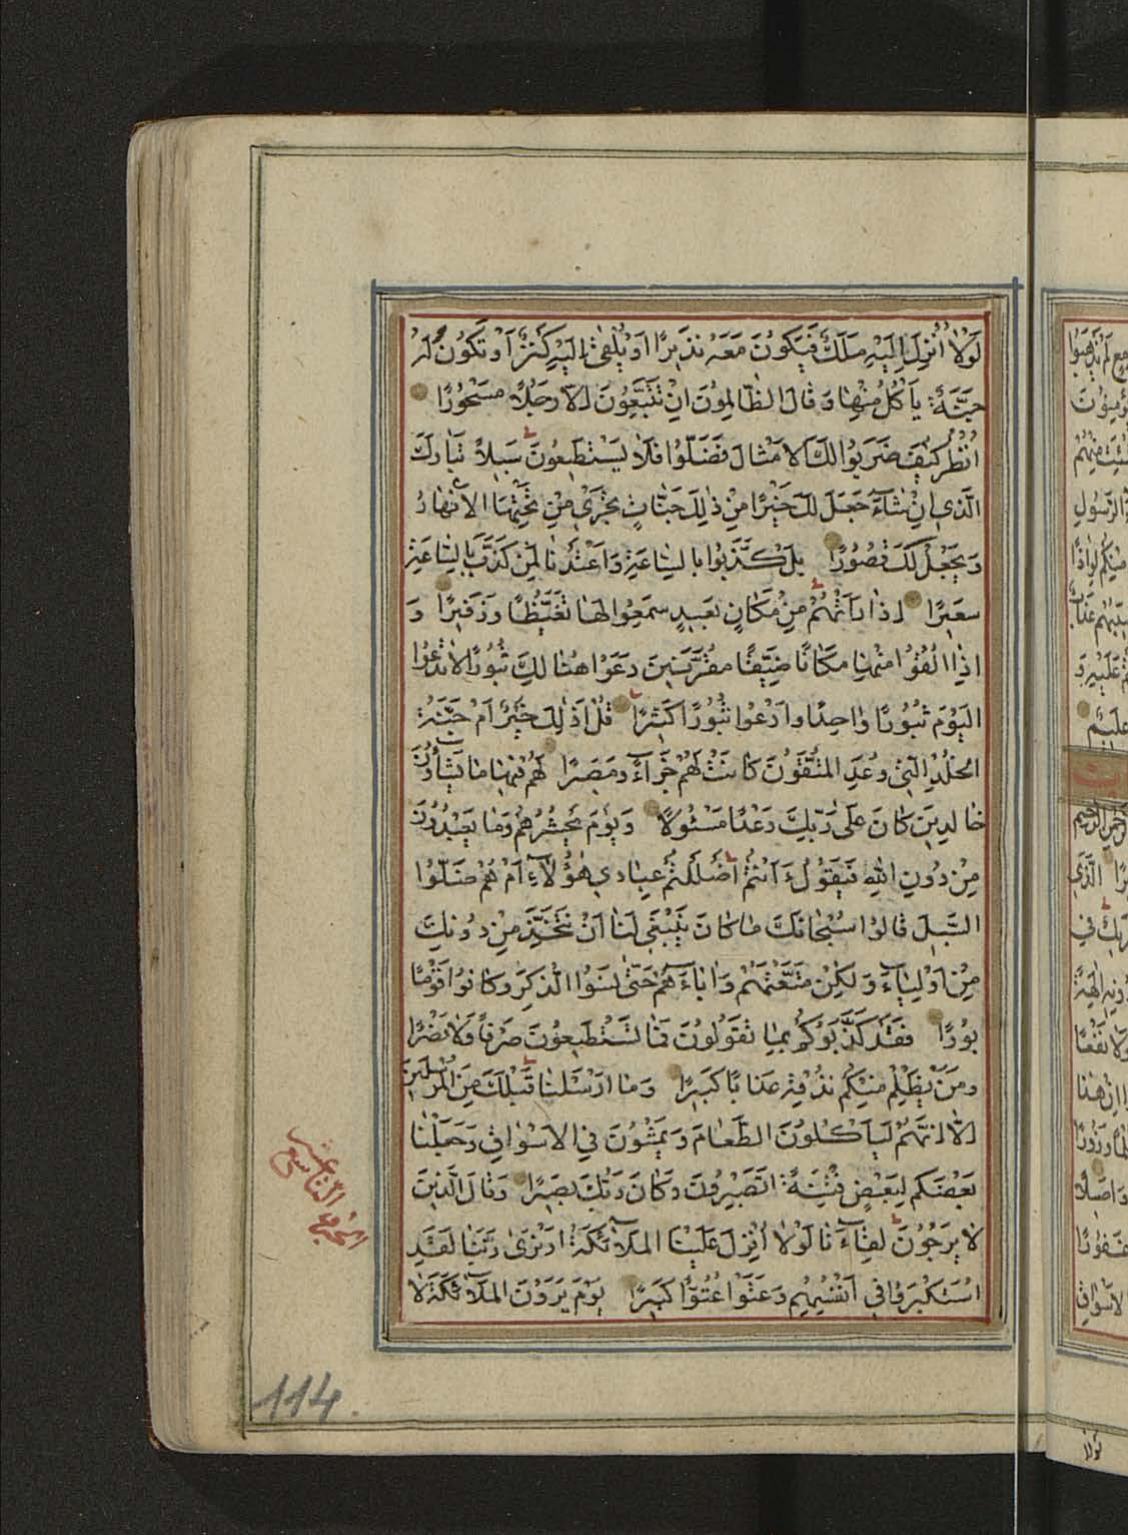 لَوْلَا أُنْزِلَ إِلَيْهِ مَلَكٌ فَيَكُونَ مَعَهُ نَذِيرًا أَوْ يُلْقَىٰ إِلَيْهِ كَنْزٌ أَوْ تَكُونُ لَهُ
جَنَّةٌ يَأْكُلُ مِنْهَا وَقَالَ الظَّالِمُونَ إِنْ تَتَّبِعُونَ إِلَّا رَجُلًا مَسْحُورًا
اُنْظُرْ كَيْفَ ضَرَبُوا لَكَ الْأَمْثَالَ فَضَلُّوا فَلَا يَسْتَطِيعُونَ سَبِيلًا تَبَارَكَ
الَّذِي إِنْ شَاءَ جَعَلَ لَكَ خَيْرًا مِنْ ذَٰلِكَ جَنَّاتٍ تَجْرِي مِنْ تَحْتِهَا الْأَنْهَارُ
وَيَجْعَلْ لَكَ قُصُورًا بَلْ كَذَّبُوا بِالسَّاعَةِ وَأَعْتَدْنَا لِمَنْ كَذَّبَ بِالسَّاعَةِ
سَعِيرًا إِذَا رَأَتْهُمْ مِنْ مَكَانٍ بَعِيدٍ سَمِعُوا لَهَا تَغَيُّظًا وَزَفِيرًا وَ
إِذَا أُلْقُوا مِنْهَا مَكَانًا ضَيِّقًا مُقَرَّنِينَ دَعَوْا هُنَالِكَ ثُبُورًا لَا تَدْعُوا
الْيَوْمَ ثُبُورًا وَاحِدًا وَادْعُوا ثُبُورًا كَثِيرًا قُلْ أَذَٰلِكَ خَيْرٌ أَمْ جَنَّةُ
الْخُلْدِ الَّتِي وُعِدَ الْمُتَّقُونَ كَانَتْ لَهُمْ جَزَاءً وَمَصِيرًا لَهُمْ فِيهَا مَا يَشَاؤُنَ
خَالِدِينَ كَانَ عَلَىٰ رَبِّكَ وَعْدًا مَسْئُولًا وَيَوْمَ يَحْشُرُهُمْ وَمَا يَعْبُدُونَ
مِنْ دُونِ اللَّهِ فَيَقُولُ ءَأَنْتُمْ أَضْلَلْتُمْ عِبَادِي هَٰؤُلَاءِ أَمْ هُمْ ضَلُّوا
السَّبِيلَ قَالُوا سُبْحَانَكَ مَا كَانَ يَنْبَغِي لَنَا أَنْ نَتَّخِذَ مِنْ دُونِكَ
مِنْ أَوْلِيَاءَ وَلَٰكِنْ مَتَّعْتَهُمْ وَآبَاءَهُمْ حَتَّىٰ نَسُوا الذِّكْرَ وَكَانُوا قَوْمًا
بُورًا فَقَدْ كَذَّبُوكُمْ بِمَا تَقُولُونَ فَمَا تَسْتَطِيعُونَ صَرْفًا وَلَا نَصْرًا
وَمَنْ يَظْلِمْ مِنْكُمْ نُذِقْهُ عَذَابًا كَبِيرًا وَمَا أَرْسَلْنَا قَبْلَكَ مِنَ الْمُرْسَلِينَ
إِلَّا إِنَّهُمْ لَيَأْكُلُونَ الطَّعَامَ وَيَمْشُونَ فِي الْأَسْوَاقِ وَجَعَلْنَا
بَعْضَكُمْ لِبَعْضٍ فِتْنَةً أَتَصْبِرُونَ وَكَانَ رَبُّكَ بَصِيرًا وَقَالَ الَّذِينَ
لَا يَرْجُونَ لِقَاءَنَا لَوْلَا أُنْزِلَ عَلَيْنَا الْمَلَائِكَةُ أَوْ نَرَىٰ رَبَّنَا لَقَدِ
اسْتَكْبَرُوا فِي أَنْفُسِهِمْ وَعَتَوْا عُتُوًّا كَبِيرًا يَوْمَ يَرَوْنَ الْمَلَائِكَةَ لَا
الجزء التاسع عشر
114